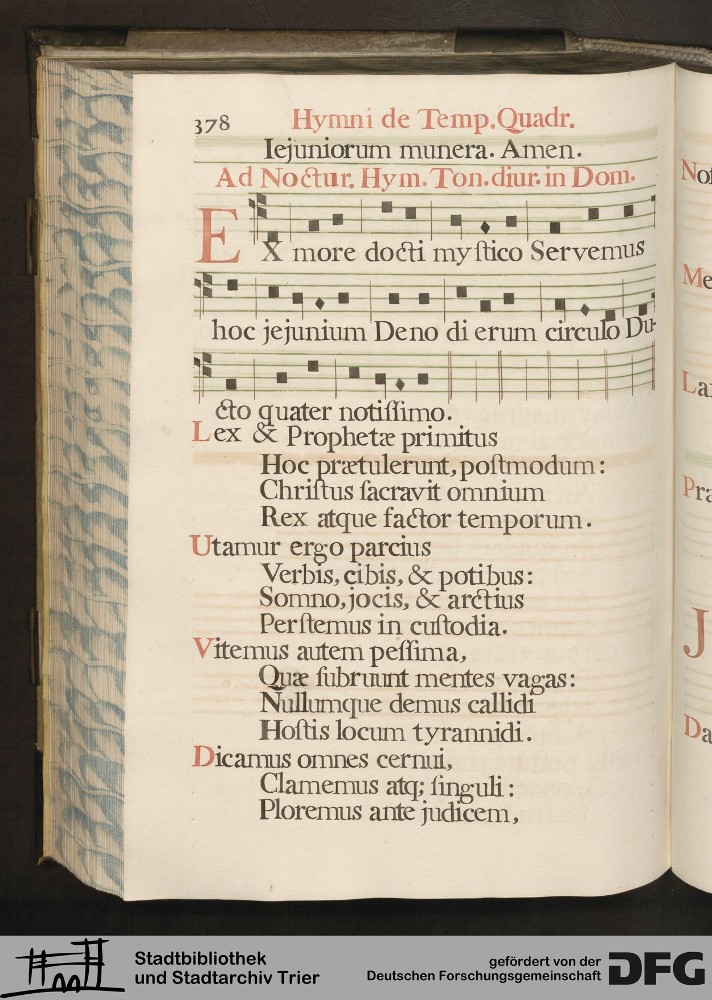 378 Hymni de Temp. Quadr.
Iejuniorum munera. Amen.
Ad Noctur. Hym. Ton. diur. in Dom.
EX more docti my ſtico Servemus
hoc jejunium Deno di erum circulo Du-
cto quater notiſſimo.
Lex & Prophetæ primitus
Hoc prætulerunt, poſtmodum:
Chriſtus ſacravit omnium
Rex atque factor temporum.
Utamur ergo parcius
Verbis, cibis, & potibus:
Somno, jocis, & arctius
Perſtemus in cuſtodia.
Vitemus autem peſſima,
Quæ ſubruunt mentes vagas:
Nullumque demus callidi
Hoſtis locum tyrannidi.
Dicamus omnes cernui,
Clamemus atq; ſinguli:
Ploremus ante judicem,
Me
Pra
J
Da
Stadtbibliothek
und Stadtarchiv Trier
gefördert von der
Deutschen Forschungsgemeinschaft
DFG